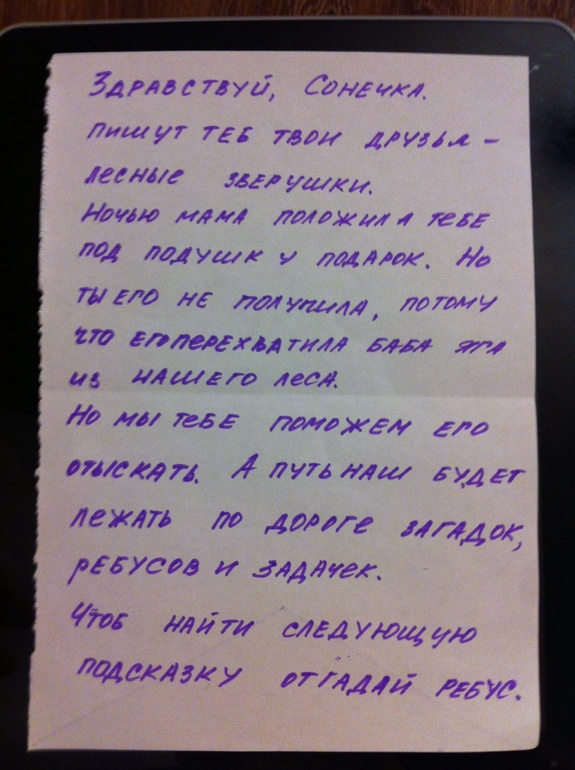 Здравствуй, Сонечка.
пишут теб твои друзья –
лесные зверушки.
Ночью мама положила тебе
под подушку подарок. Но
ты его не получила, потому
что его перехватила баба яга
из нашего леса.
Но мы тебе поможем его
отыскать. А путь наш будет
лежать по дороге загадок,
ребусов и задачек.
Чтоб найти следующую
подсказку отгадай ребус.